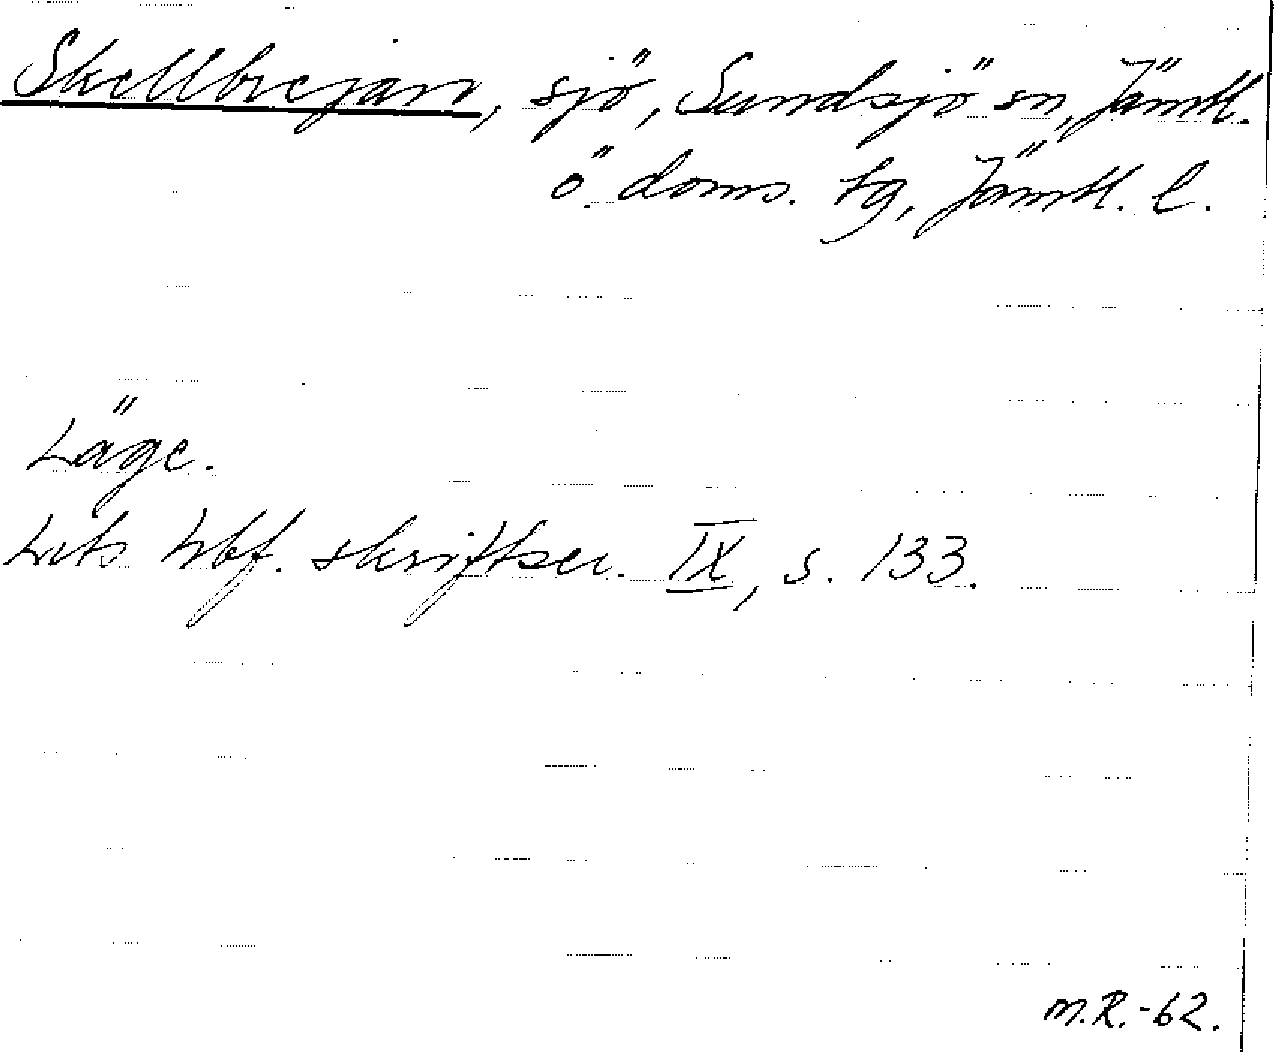 Skellbrejan, sjö, Sundsjö sn, Jämtl.
ö. doms. tg, Jämtl. l.
Läge.
Lits hbf. skriftser. IX, s. 133.
M.R.-62.